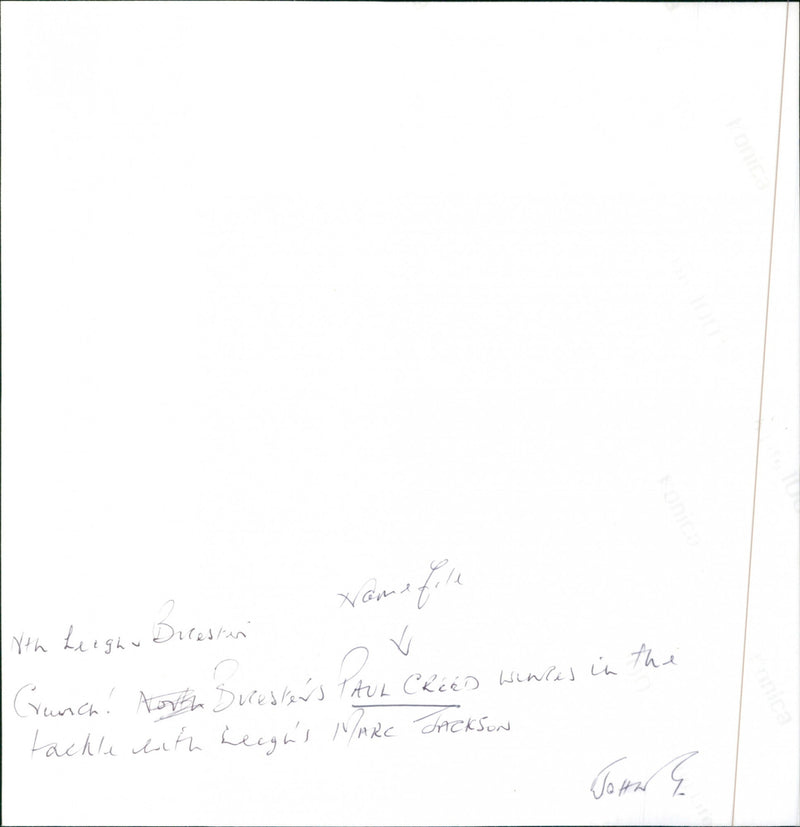 Name file
Nth Leigh v Bicester
Crunch! North Bicester's PAUL CREED winces in the
tackle with Leigh's MARC JACKSON
JOHN G.
Konica
Konica
Konica